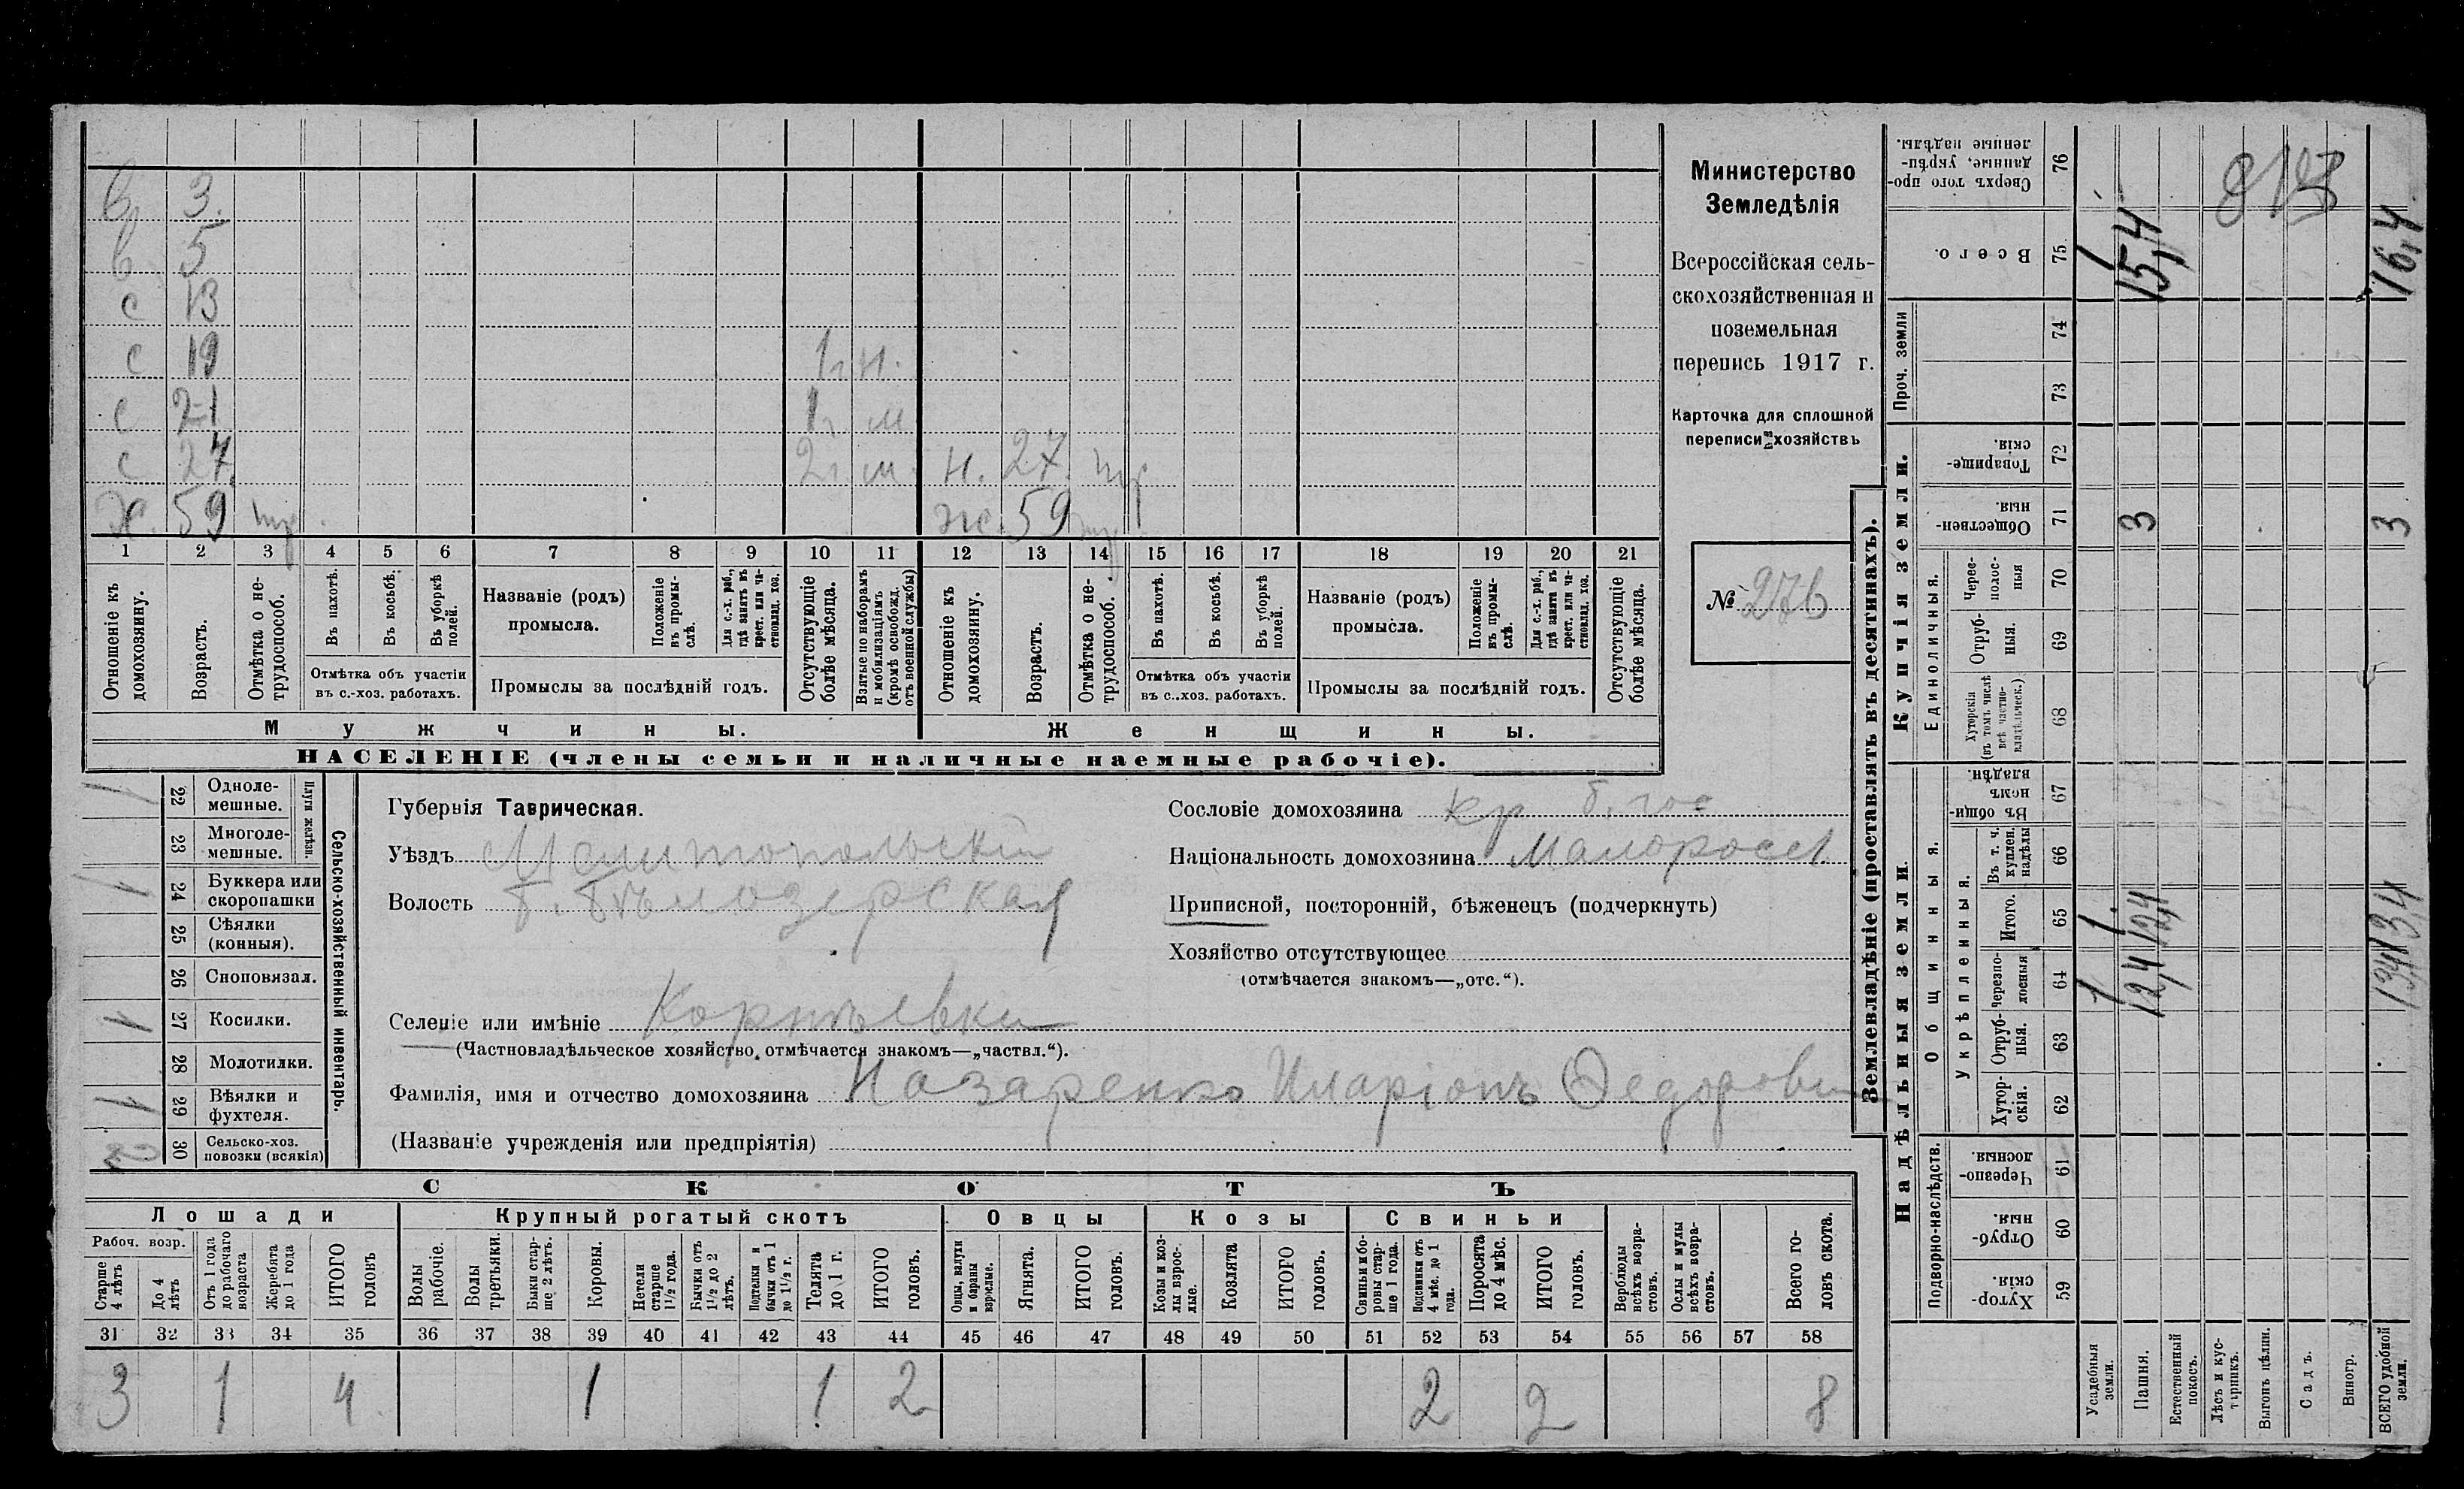 в 3.
в 5
с 13
с 19 1 г. н.
с 21 1 г. м
с 27. 2 г. м. н. 27. тр
Х. 59 тр. ж. 59 тр
1 2 3 4 5 6 7 8 9 10 11 12 13 14 15 16 17 18 19 20 21
Отношеніе къ домохозяину.
Возрастъ.
Отмѣтка о не-трудоспособ.
Въ пахотѣ.
Въ косьбѣ.
Въ уборкѣ полей.
Отмѣтка объ участіи
въ с.-хоз. работахъ.
Названіе (родъ)
промысла.
Положеніе въ промы-слѣ.
Для с.-х. раб., гдѣ занятъ въ крест. или ча-стновлад. хоз.
Промыслы за послѣдній годъ.
Отсутствующіе болѣе мѣсяца.
Взятые по наборамъ и мобилизаціямъ (кромѣ освобожд. отъ военной службы)
Отношеніе къ домохозяину.
Возрастъ.
Отмѣтка о не-трудоспособ.
Въ пахотѣ.
Въ косьбѣ.
Въ уборкѣ полей.
Отмѣтка объ участіи
въ с..хоз. работахъ.
Названіе (родъ)
промысла.
Положеніе въ промы-слѣ.
Для с.-х. раб., гдѣ занята въ крест. или ча-стновлад. хоз.
Промыслы за послѣдній годъ.
Отсутствующіе болѣе мѣсяца.
Мужчины.
Женщины.
НАСЕЛЕНІЕ (члены семьи и наличные наемные рабочіе).
Министерство
Земледѣлія
Всероссійская сель-
скохозяйственная и
поземельная
перепись 1917 г.
Карточка для сплошной
переписи хозяйствъ
№ 276
1 22 Одноле-мешные.
23 Многоле-мешные.
Плуги желѣзн.
1 24 Буккера или скоропашки
25 Сѣялки (конныя).
26 Сноповязал.
1 27 Косилки.
28 Молотилки.
1 29 Вѣялки и фухтеля.
2 30 Сельско-хоз. повозки (всякія)
Сельско-хозяйственный инвентарь.
Губернія Таврическая.
Уѣздъ Мелитопольскій
Волость Б. Бѣлозерская
Селеніе или имѣніе Корнѣевка
(Частновладѣльческое хозяйство отмѣчается знакомъ—„частвл.“).
Фамилія, имя и отчество домохозяина Назаренко Иларіонъ Федорови
(Названіе учрежденія или предпріятія)
Сословіе домохозяина кр б. гос
Національность домохозяина Малоросс.
Приписной, посторонній, бѣженецъ (подчеркнуть)
Хозяйство отсутствующее
(отмѣчается знакомъ—„отс.“).
СКОТЪ
Лошади
Крупный рогатый скотъ
Овцы
Козы
Свиньи
Рабоч. возр.
Старше 4 лѣтъ
До 4 лѣтъ
Отъ 1 года до рабочаго возраста
Жеребята до 1 года
ИТОГО головъ
Волы рабочіе.
Волы третьяки.
Быки стар-ше 2 лѣтъ.
Коровы.
Нетели старше 1½ года.
Бычки отъ 1½ до 2 лѣтъ.
Подтелки и бычки отъ 1 до 1½ г.
Телята до 1 г.
ИТОГО головъ.
Овцы, валухи и бараны взрослые.
Ягнята.
ИТОГО головъ.
Козы и коз-лы взрос-лые.
Козлята
ИТОГО головъ.
Свиньи и бо-ровы стар-ше 1 года.
Подсвинки отъ 4 мѣс. до 1 года.
Поросята до 4 мѣс.
ИТОГО головъ.
Верблюды всѣхъ возра-стовъ.
Ослы и мулы всѣхъ возра-стовъ.
Всего го-ловъ скота.
31 32 33 34 35 36 37 38 39 40 41 42 43 44 45 46 47 48 49 50 51 52 53 54 55 56 57 58
3 1 4 1 1 2 2 2 8
Землевладѣніе (проставлять въ десятинахъ).
Надѣльныя земли.
Купчія земли.
Проч. земли
Сверхъ того про-данные, укрѣп-ленные надѣлы. 76
Всего. 75 1 15,4 16,4
74
73
Товарище-скія. 72
Обществен-ныя. 71 3 3
Единоличныя.
Черес-полос-ныя 70
Отруб-ныя. 69
Хуторскія (въ томъ числѣ всѣ частно-владѣльческ.) 68
Общинныя.
Въ общин-номъ владѣн. 67
Укрѣпленныя.
Въ т. ч. куплен. надѣлы 66
Итого. 65 1. 12,4 13,4
Черезпо-лосныя 64 1 12,4 13,4
Отруб-ныя. 63
Хутор-скія. 62
Подворно-наслѣдств.
Черезпо-лосныя. 61
Отруб-ныя. 60
Хутор-скія. 59
Усадебныя земли.
Пашня.
Естественный покосъ.
Лѣсъ и кус-тарникъ.
Выгонъ цѣлин.
Садъ.
Виногр.
ВСЕГО удобной земли.